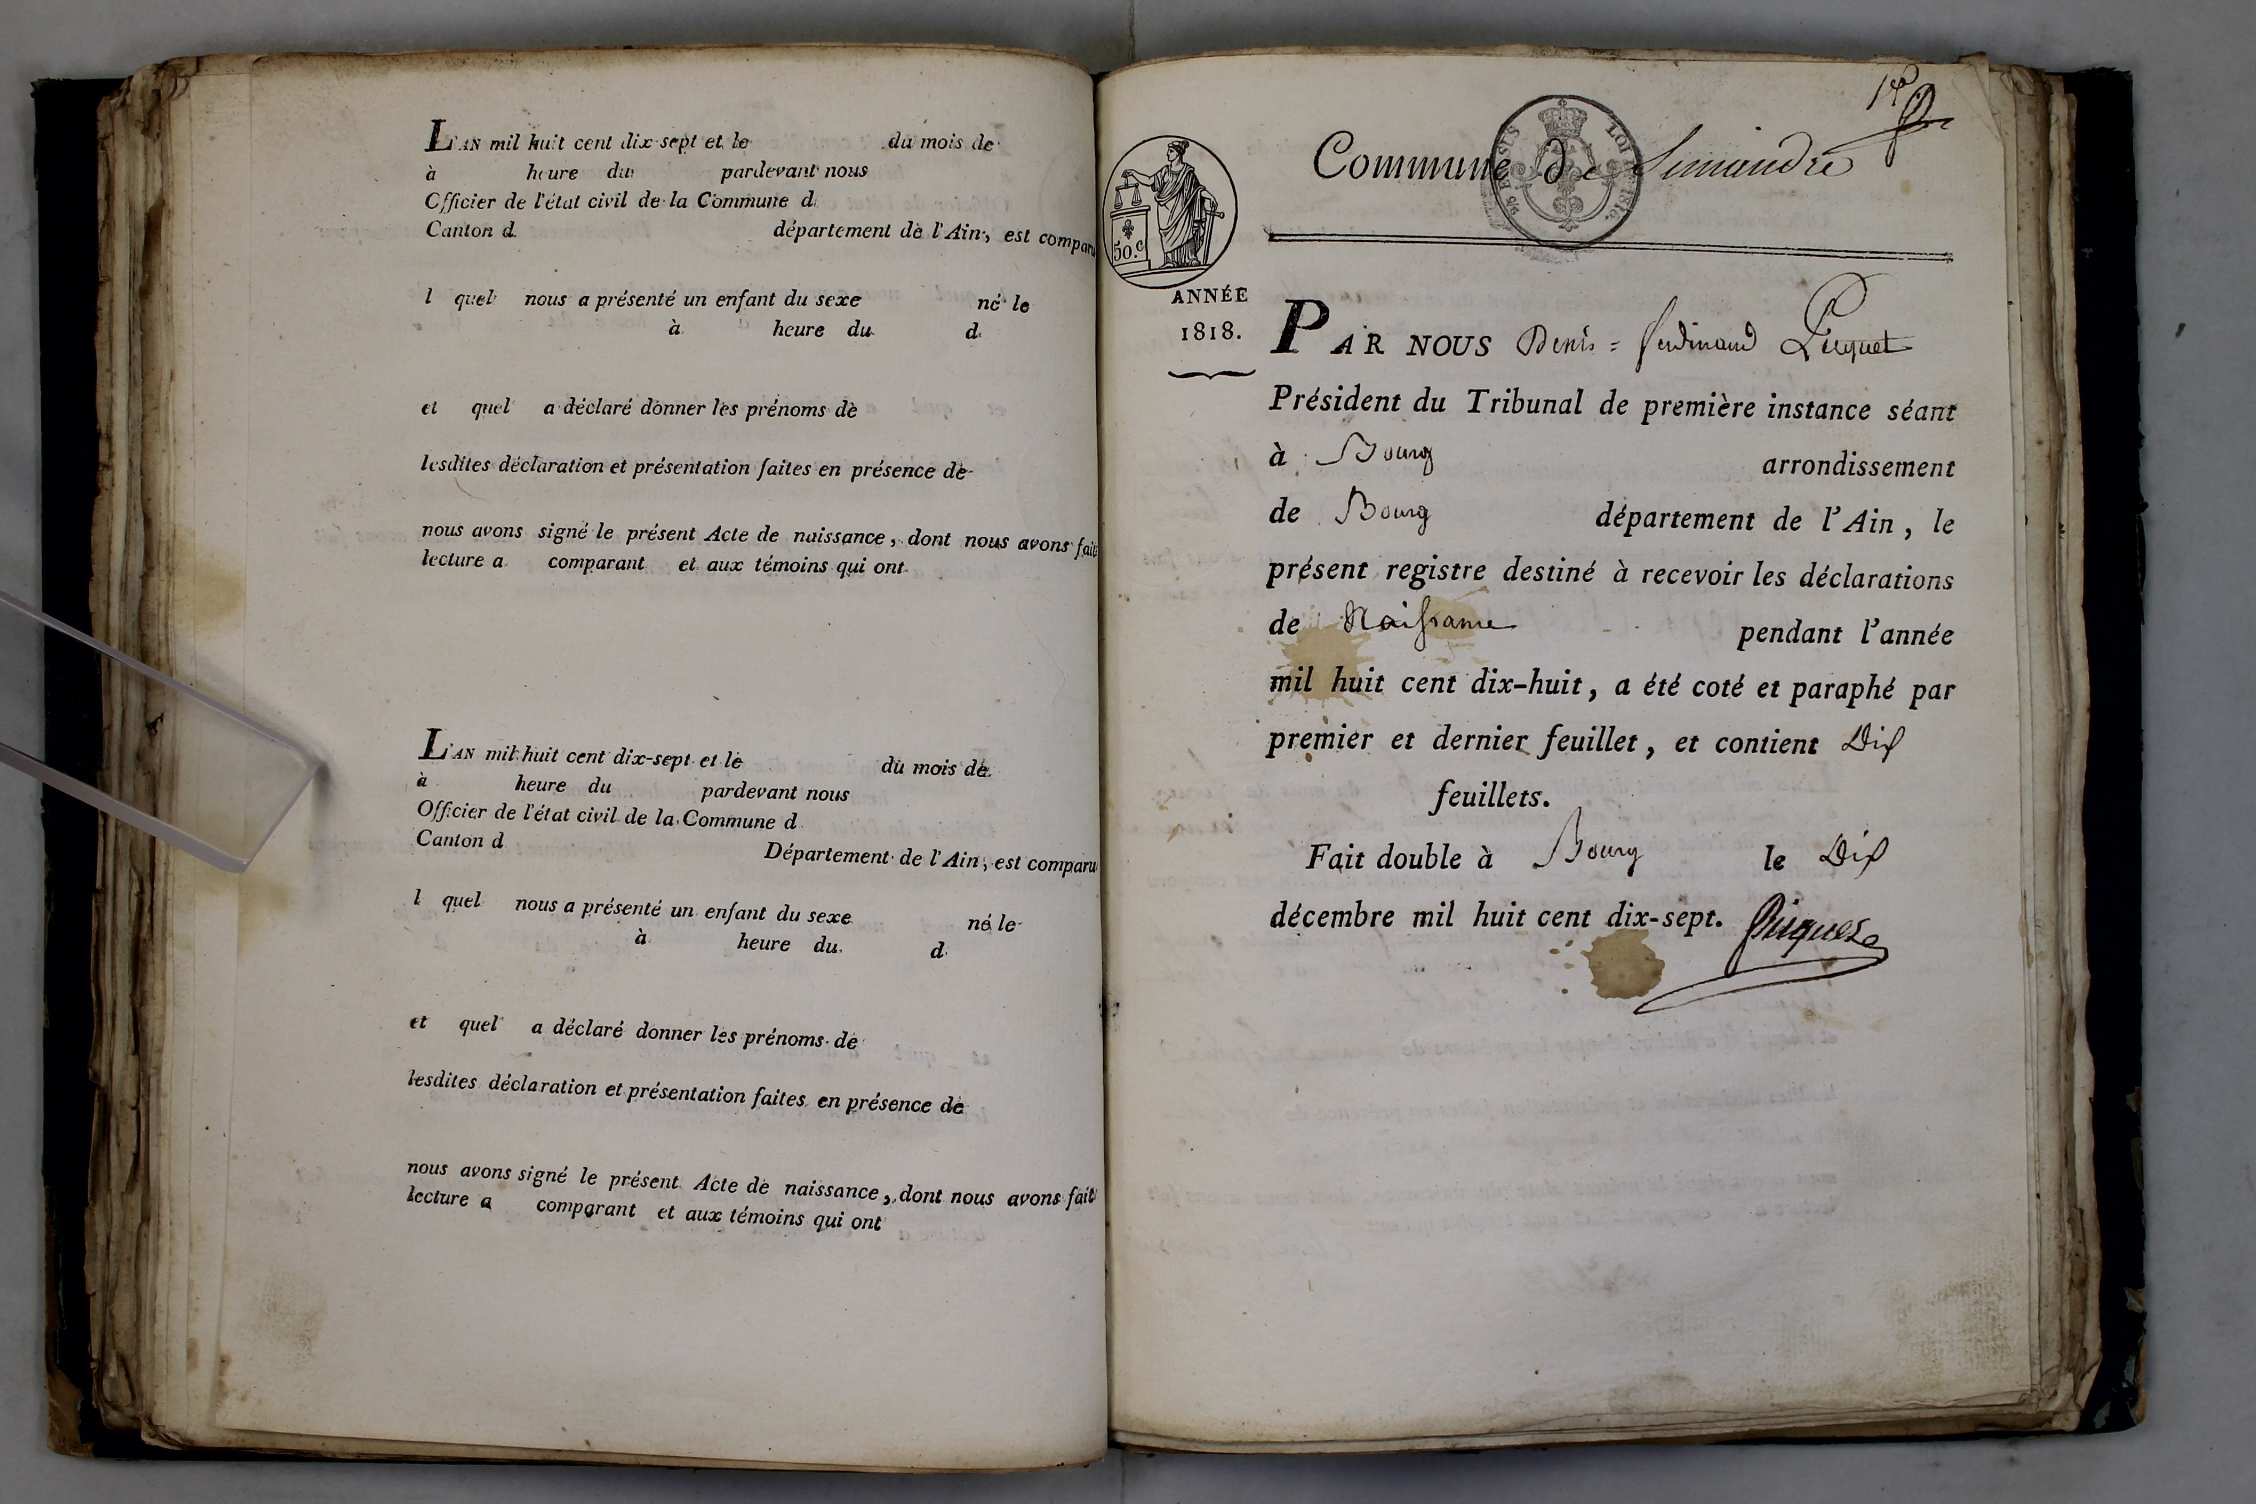 L'AN mil huit cent dix-sept et le du mois de
à heure du pardevant nous
Officier de l'état civil de la Commune d
Canton d département de l'Ain, est comparu
l quel nous a présenté un enfant du sexe né le
à heure du d
et quel a déclaré donner les prénoms de
lesdites déclaration et présentation faites en présence de
nous avons signé le présent Acte de naissance, dont nous avons fait
lecture a comparant et aux témoins qui ont
L'AN mil huit cent dix-sept et le du mois de
à heure du pardevant nous
Officier de l'état civil de la Commune d
Canton d Département de l'Ain, est comparu
l quel nous a présenté un enfant du sexe né le
à heure du d
et quel a déclaré donner les prénoms de
lesdites déclaration et présentation faites en présence de
nous avons signé le présent Acte de naissance, dont nous avons fait
lecture a comparant et aux témoins qui ont
1er
Commune de Simandre
50.c
ANNÉE
1818.
PAR NOUS Denis = ferdinand Picquet
Président du Tribunal de première instance séant
à Bourg arrondissement
de Bourg département de l'Ain, le
présent registre destiné à recevoir les déclarations
de Naissance pendant l'année
mil huit cent dix-huit, a été coté et paraphé par
premier et dernier feuillet, et contient Dix
feuillets.
Fait double à Bourg le Dix
décembre mil huit cent dix-sept. Picquet